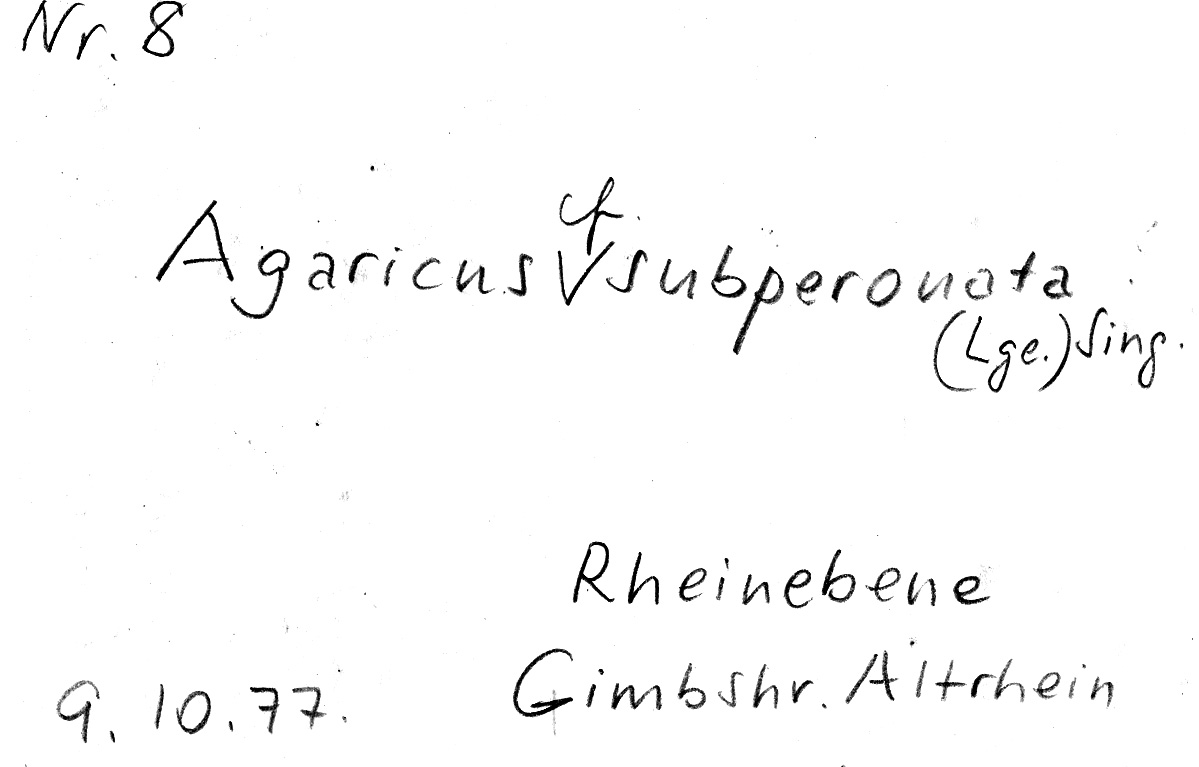 Nr. 8
Agaricus cf. subperonata
(Lge.) Sing.
Rheinebene
9. 10. 77. Gimbshr. Altrhein